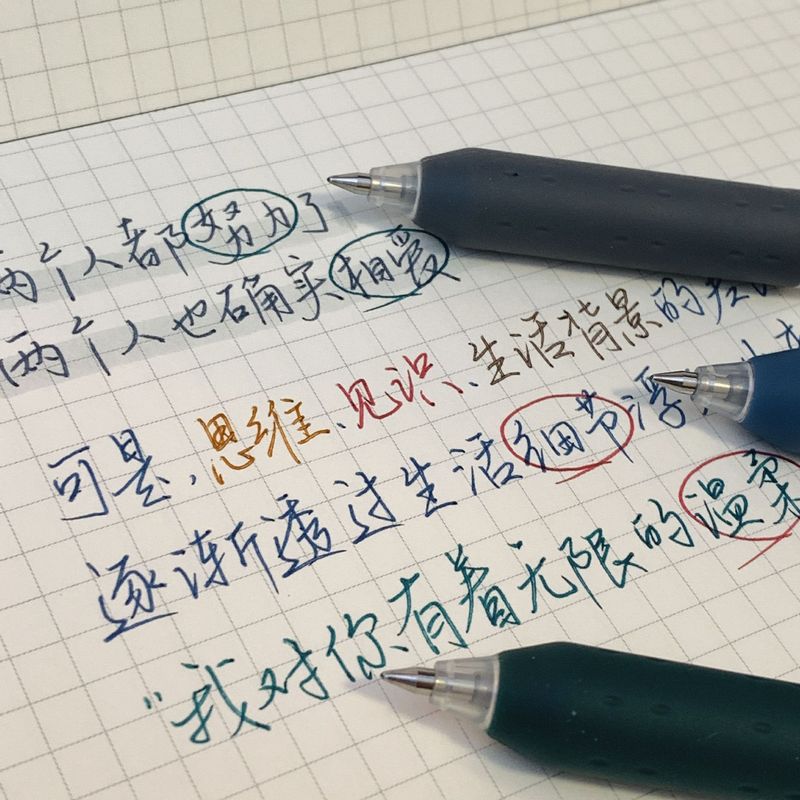 两个人都努力了
两个人也确实相爱
可是、思维、见识、生活背景的
逐渐透过生活细节浮
“我对你、有着无限的温柔